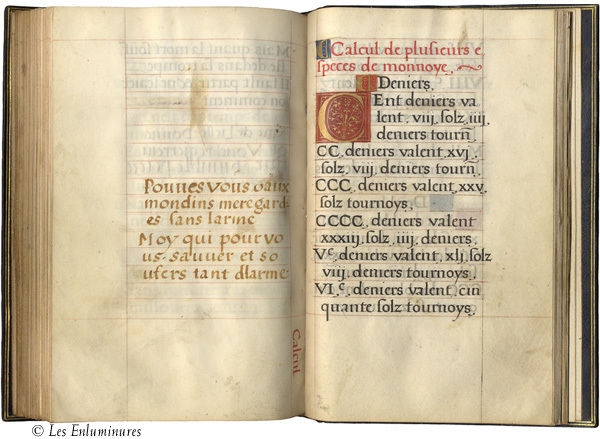 Pouves vous o aux
mondins me regard-
es sans larme
Moy qui pour vo
us sauver et so
ufers tant dlarme
Calcul
Calcul de plusieurs e,
speces de monnoye,
Deniers.
Cent deniers va
lent, viij, solz, iiij,
deniers tourñ,
CC, deniers valent, xvj,
solz, viij, deniers tourñ,
CCC, deniers valent, xxv,
solz tournoys,
CCCC, deniers valent
xxxiij, solz, iiij, deniers,
Vᶜ, deniers valent, xlj, solz
viij, deniers tournoys,
VIᶜ, deniers valent, cin
quante solz tournoys,
© Les Enluminures